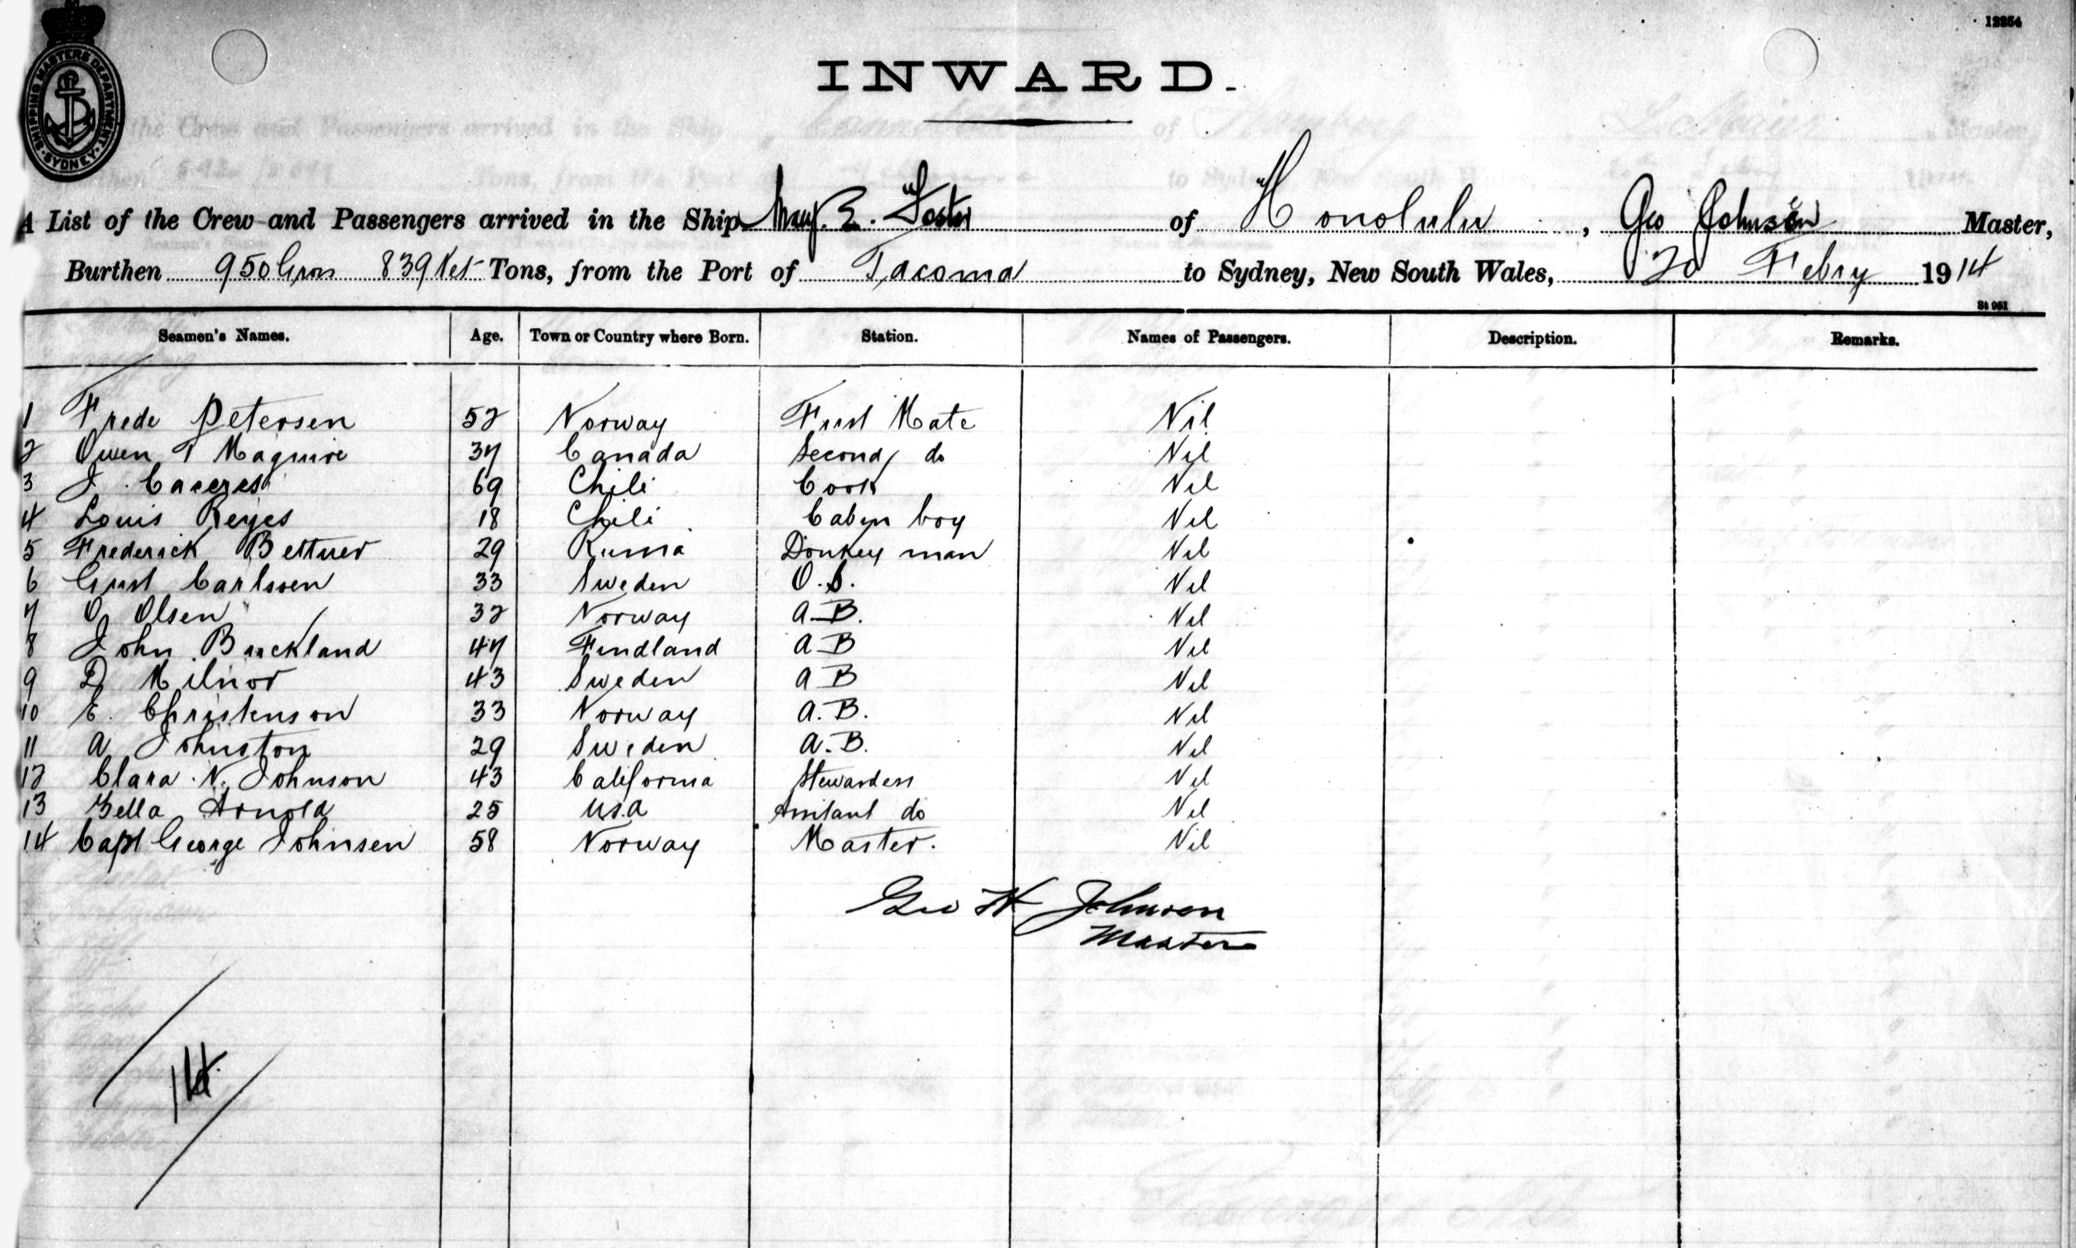 12254
SHIPPING MASTERS DEPARTMENT SYDNEY
INWARD.
A List of the Crew and Passengers arrived in the Ship Mary E. Foster of Honolulu, Geo Johnson Master,
Burthen 950 Gross 839 Net Tons, from the Port of Tacoma to Sydney, New South Wales, 20 Febry 1914
St 951
Seamen's Names. Age. Town or Country where Born. Station. Names of Passengers. Description. Remarks.
1 Frede Petersen 52 Norway First Mate Nil
2 Owen T Maguire 37 Canada Second do Nil
3 J. Caceres 69 Chili Cook Nil
4 Louis Reyes 18 Chili Cabin boy Nil
5 Frederick 29 Russia Donkey man Nil
6 Gust Carlsson 33 Sweden O.S. Nil
7 O Olsen 32 Norway A.B. Nil
8 John Buckland 47 Findland A B Nil
9 D Milnor 43 Sweden A B Nil
10 E. Christenson 33 Norway A.B. Nil
11 A Johnston 29 Sweden A.B. Nil
12 Clara N. Johnson 43 California Stewardess Nil
13 Zella Arnold 25 USA Assistant do Nil
14 Capt George Johnsen 58 Norway Master. Nil
Geo H Johnson
Master
14